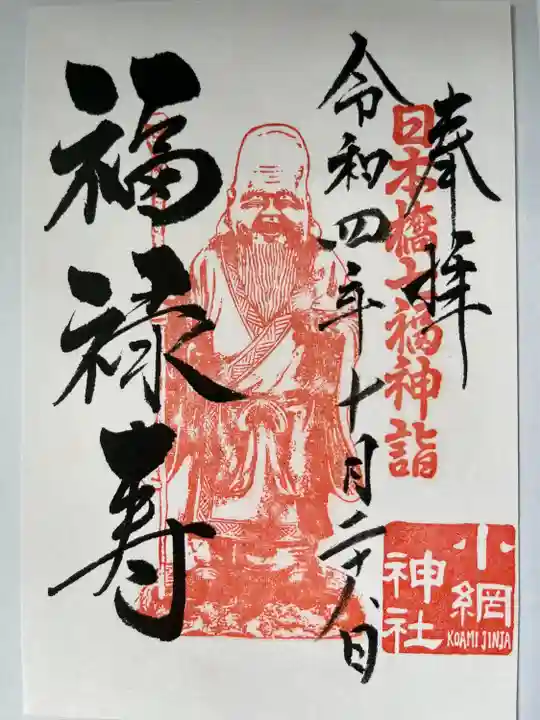 奉拝
日本橋七福神詣
令和四年十月二十八日
福禄寿
小網
神社
KOAMI JINJA